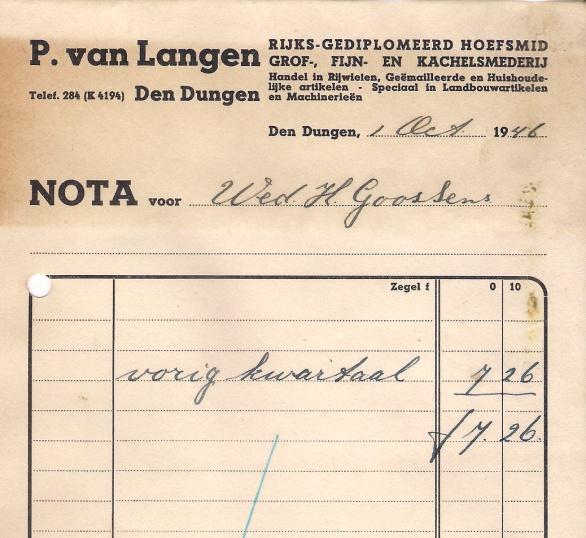 P. van Langen
Telef. 284 (K 4194) Den Dungen
RIJKS-GEDIPLOMEERD HOEFSMID
GROF-, FIJN- EN KACHELSMEDERIJ
Handel in Rijwielen, Geëmailleerde en Huishoude-
lijke artikelen - Speciaal in Landbouwartikelen
en Machinerieën
Den Dungen, 1 Oct 1946
NOTA voor Wed. H. Goossens
Zegel f 0 10
vorig kwartaal 7 26
f 7. 26.